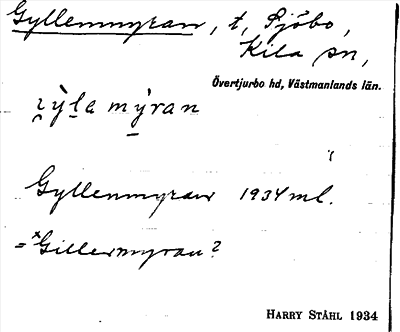 Gyllenmyran, t, Sjöbo,
Kila sn,
Övertjurbo hd, Västmanlands län.
ɀỳla mỳran
Gyllenmyran 1934 ml.
= *Gillermyran?
HARRY STÅHL 1934